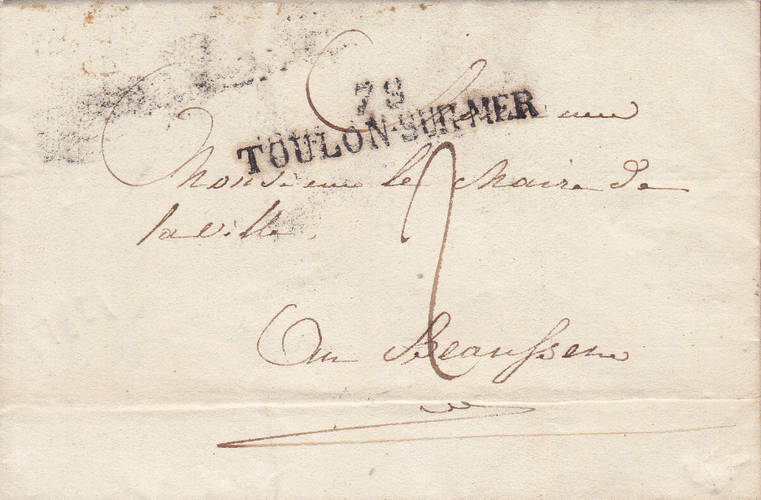 79
TOULON-SUR-MER
A Monsieur
Monsieur le Maire de
la Ville.
2
Au Beausset